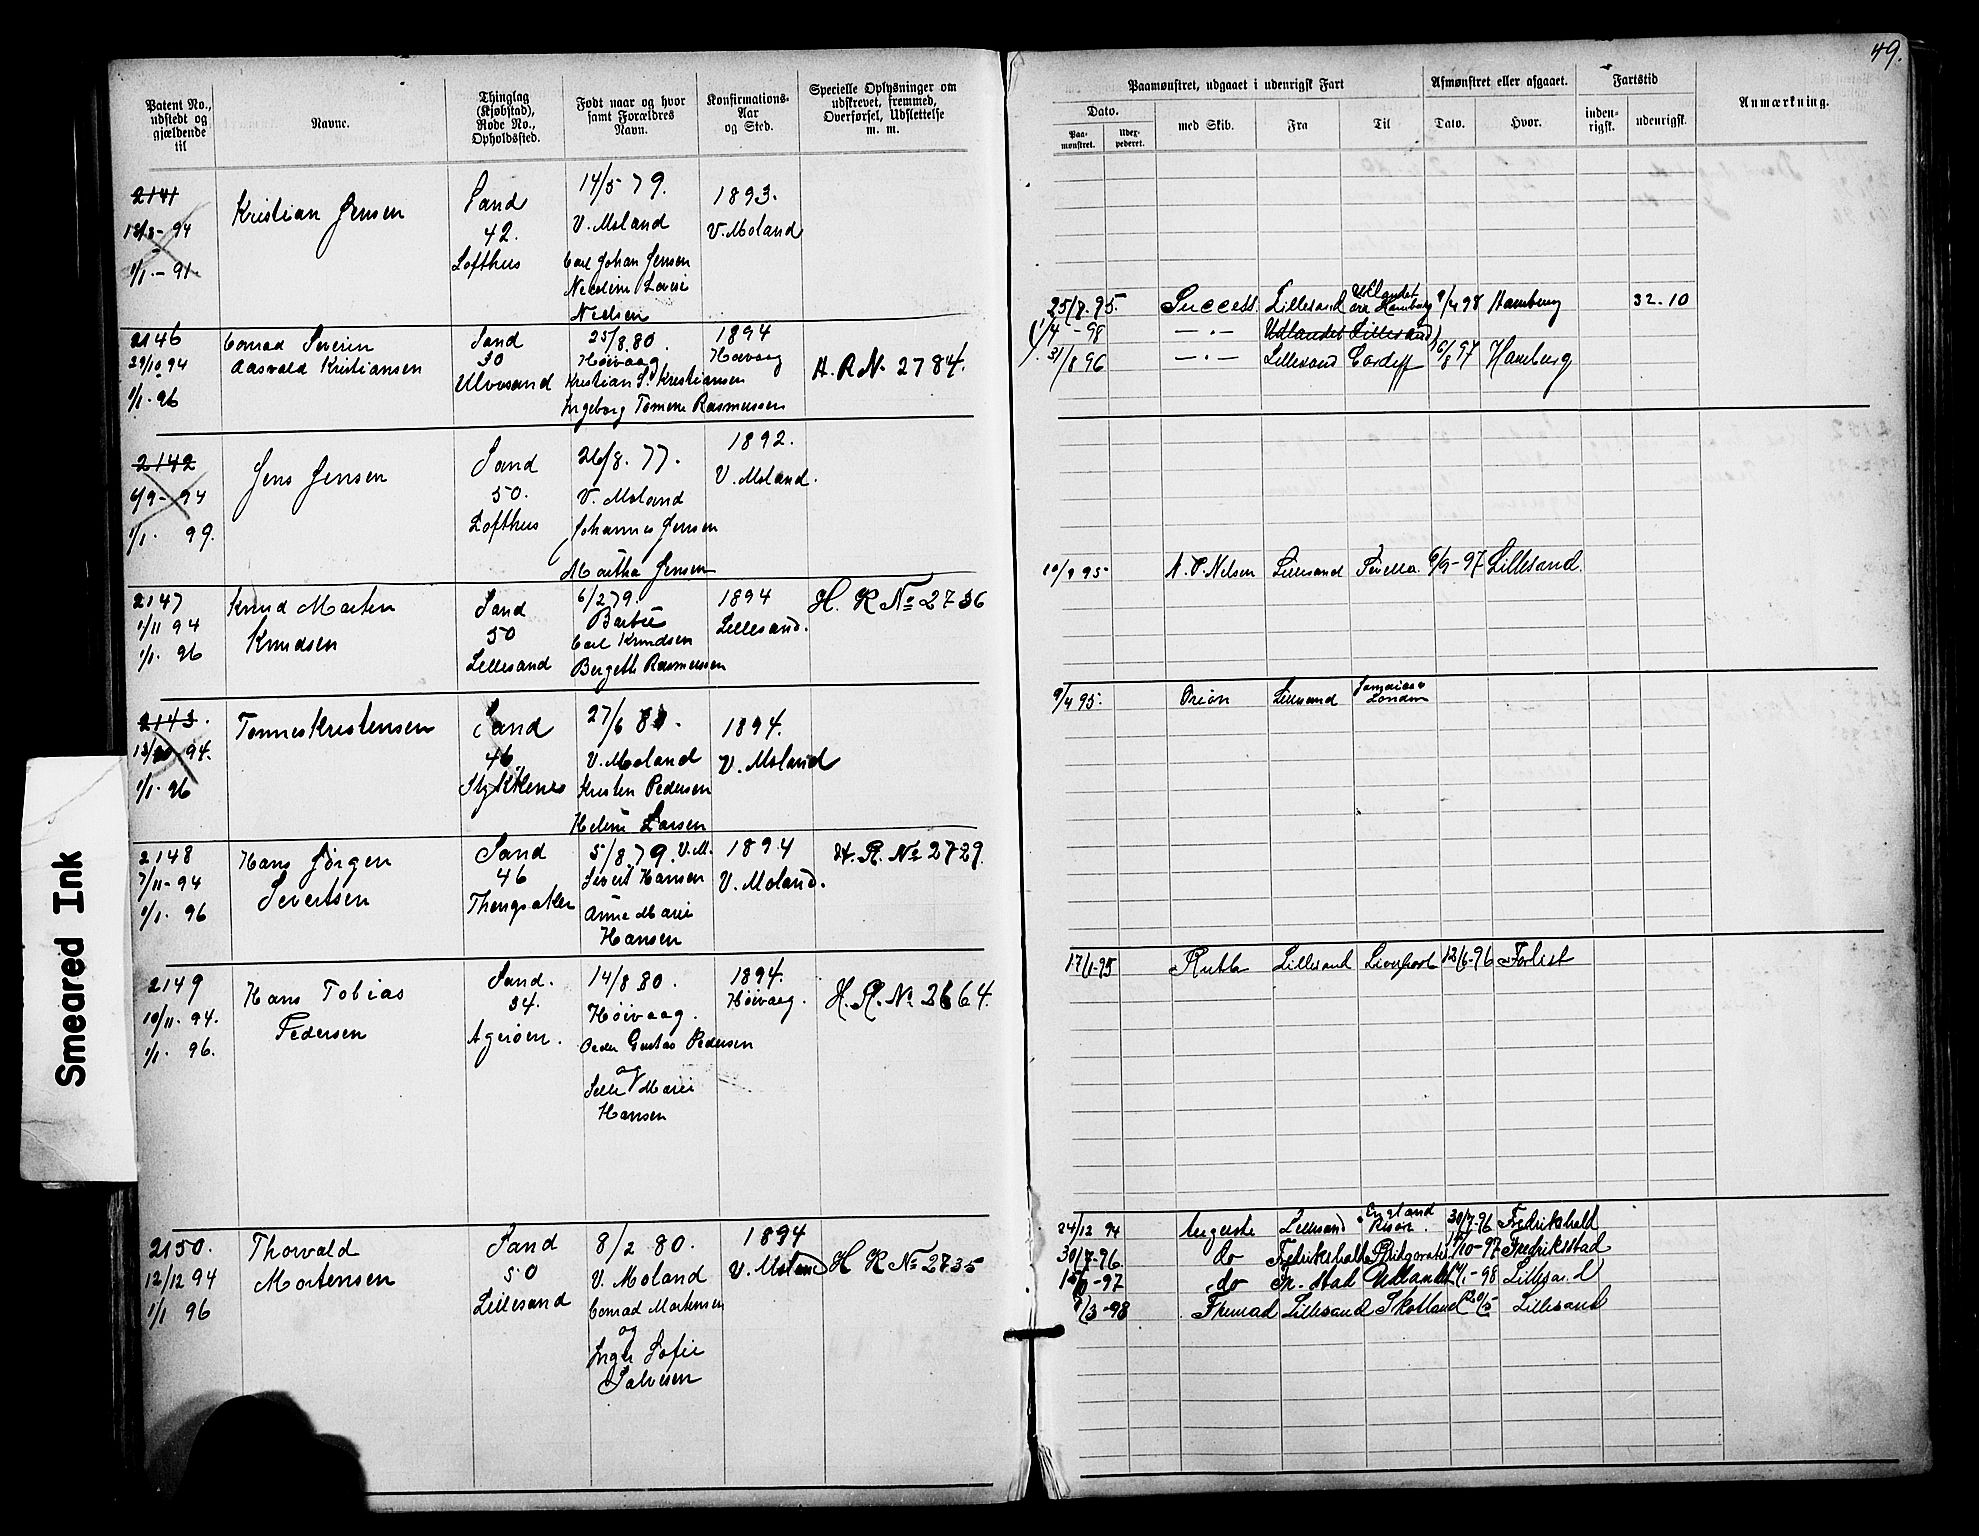 49.
Patent No., udstedt og gjældende til
Navne.
Thinglag (Kjøbstad), Rode No., Opholdssted.
Født naar og hvor samt Forældres Navn.
Konfirmations-Aar og Sted.
Specielle Oplysninger om udskrevet, fremmed, Overførsel, Udslettelse m. m.
Paamønstret, udgaaet i udenrigsk Fart
Dato.
Paa-mønstret.
Uder-pederet.
med Skib.
Fra
Til
Afmønstret eller afgaaet.
Dato.
Hvor.
Fartstid
inden-rigsk.
udenrigsk.
Anmærkning.
2141 Kristian Jensen Sand 14/5 79. 1893.
42. V. Moland V. Moland
1/1 - 91. Lofthus Carl Johan Jensen
Nielsen
25/8. 95. Success. Lillesand 1/4 98 Hamburg 32-10
1/4 - 98 —·— Udlandet Lillesand
31/8 96 —·— Lillesand Cardiff 6/8 97 Hamburg
2146 Conrad Severin Sand 25/8.80. 1894
29/10.94 Aasvald Kristiansen 30 Høivaag Høivaag H. R No. 2784.
1/1. 96 Ulvøsand Kristian S. Kristiansen
Ingeborg Tomine Rasmussen
2142 Jens Jensen Sand 26/8. 77. 1892.
6/9 - 94 50. V. Moland V. Moland.
1/1. 99. Lofthus Johannes Jensen
Martha Jensen
10/9 95 N. P. Nelsen Lillesand 6/9-97 Lillesand.
2147 Knud Martin Sand 6/2 79. 1894 H. R No 2736
1/11 94 Knudsen 50 Lillesand.
1/1. 96 Lillesand Carl Knudsen
Rasmussen
9/4 95. Orion Lillesand London
2143. Tønnes Kristensen Sand 27/6 1894.
46. V. Moland V. Moland
1/1. 96 Kristen Pedersen
Larsen
2148 Hans Jørgen Sand 5/8.79. V.M. 1894 H. R. No 2729.
7/11-94 Severtsen 46 Severt Hansen V. Moland.
1/1. 96 Anne Marie
Hansen
17/1-95 Ruth Lillesand Liverpool 12/6-96 Forlist
2149 Hans Tobias Sand. 14/8 80. 1894. H. R. No 2664.
10/11. 94. Pedersen 34. Høivaag. Høivaag.
1/1. 96. Agerøen. Peder Gustav Pedersen
og
Marie
Hansen
24/12 94 Auguste Lillesand England Risør. 30/7-96 Fredrikshald
30/7-96. do Fredrikshald 10-97 Fredriksstad
do Fr. stad Udlandet 1-98 Lillesand
8/3-98 Fremad Lillesand Skotland Lillesand
2150. Thorvald Sand 8/2 80. 1894
12/12 94 Mortensen 50 V. Moland V. Moland H R No 2735
1/1 96 Lillesand Conrad Mortensen
og
Inger Sofie
Salvesen
Smeared Ink